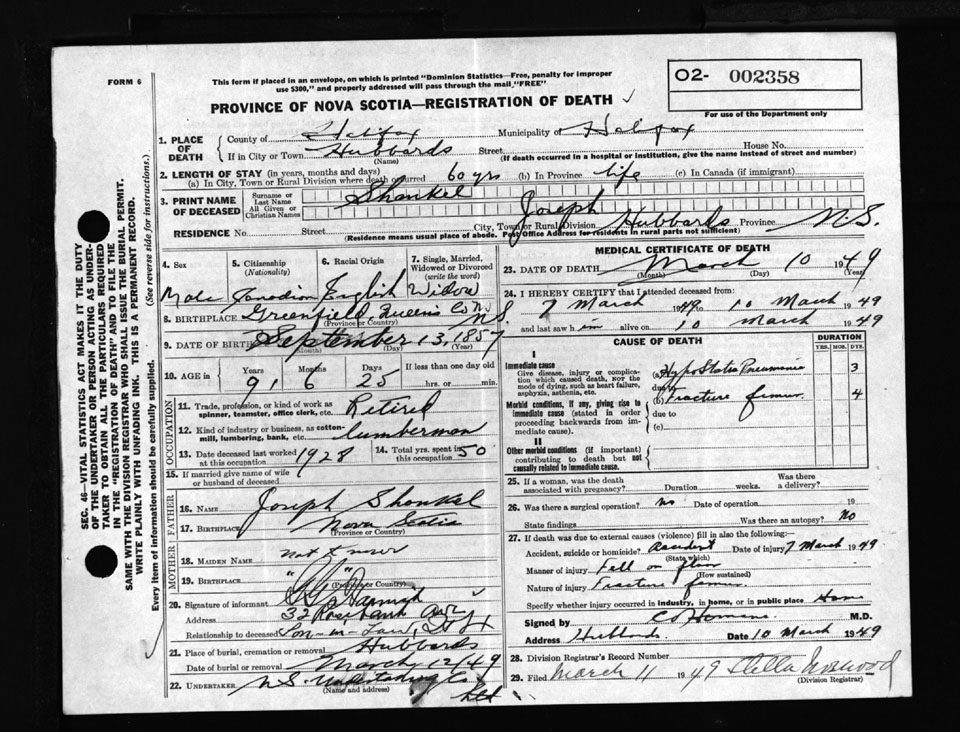 FORM 6
This form if placed in an envelope, on which is printed "Dominion Statistics—Free, penalty for improper
use $300," and properly addressed will pass through the mail, "FREE"
O2- 002358
For use of the Department only
PROVINCE OF NOVA SCOTIA—REGISTRATION OF DEATH
SEC. 46—VITAL STATISTICS ACT MAKES IT THE DUTY
OF THE UNDERTAKER OR PERSON ACTING AS UNDER-
TAKER TO OBTAIN ALL THE PARTICULARS REQUIRED
IN THE "REGISTRATION OF DEATH" AND TO FILE THE
SAME WITH THE DIVISION REGISTRAR WHO SHALL ISSUE THE BURIAL PERMIT.
WRITE PLAINLY WITH UNFADING INK. THIS IS A PERMANENT RECORD.
Every item of information should be carefully supplied. (See reverse side for instructions.)
1. PLACE OF DEATH County of Halifax Municipality of Halifax
If in City or Town Hubbards Street House No.
(Name) (If death occurred in a hospital or institution, give the name instead of street and number)
2. LENGTH OF STAY (in years, months and days)
(a) In City, Town or Rural Division where death occurred 60 yrs (b) In Province life (c) In Canada (if immigrant)
3. PRINT NAME OF DECEASED Surname or Last Name Shankel
All Given or Christian Names Joseph
RESIDENCE No. Street City, Town or Rural Division Hubbards Province N.S.
(Residence means usual place of abode. Post Office Address for residents in rural parts not sufficient)
4. Sex Male
5. Citizenship (Nationality) Canadian
6. Racial Origin English
7. Single, Married, Widowed or Divorced (write the word) Widow
8. BIRTHPLACE Greenfield, Queens Co N.S.
(Province or Country)
9. DATE OF BIRTH September 13, 1857
(Month) (Day) (Year)
10. AGE in Years 91 Months 6 Days 25 If less than one day old
hrs. or min.
OCCUPATION
11. Trade, profession, or kind of work as spinner, teamster, office clerk, etc. Retired
12. Kind of industry or business, as cotton-mill, lumbering, bank, etc. lumberman
13. Date deceased last worked at this occupation 1928 14. Total yrs. spent in this occupation 50
15. If married give name of wife or husband of deceased
FATHER
16. Name Joseph Shankel
17. Birthplace Nova Scotia
(Province or Country)
MOTHER
18. Maiden Name not known
19. Birthplace " "
(Province or Country)
20. Signature of informant
Address 32 Rosebank Ave
Relationship to deceased Son-in-Law, Hfx
21. Place of burial, cremation or removal Hubbards
Date of burial or removal March 12/49
22. UNDERTAKER N.S. Undertaking Co Ltd
(Name and address)
MEDICAL CERTIFICATE OF DEATH
23. DATE OF DEATH March 10 1949
(Month) (Day) (Year)
24. I HEREBY CERTIFY that I attended deceased from
7 March 1949 to 10 March 1949
and last saw him alive on 10 March 1949
CAUSE OF DEATH DURATION
YRS. MOS. DYS.
I
Immediate cause
Give disease, injury or complication which caused death, NOT the mode of dying, such as heart failure, asphyxia, asthenia, etc.
(a) HypoStatic Pneumonia 3
due to
Morbid conditions, if any, giving rise to immediate cause (stated in order proceeding backwards from immediate cause).
(b) Fracture femur 4
due to
(c)
II
Other morbid conditions (if important) contributing to death but not causally related to immediate cause.
25. If a woman, was the death associated with pregnancy? Duration weeks. Was there a delivery?
26. Was there a surgical operation? no Date of operation 19
State findings Was there an autopsy? No
27. If death was due to external causes (violence) fill in also the following:—
Accident, suicide or homicide? Accident Date of injury 7 March 1949
(State which)
Manner of injury Fell on floor
(How sustained)
Nature of injury Fracture femur
Specify whether injury occurred in industry, in home, or in public place Home
Signed by M.D.
Address Hubbards Date 10 March 1949
28. Division Registrar's Record Number
29. Filed March 11 1949 Stella Norwood
(Division Registrar)